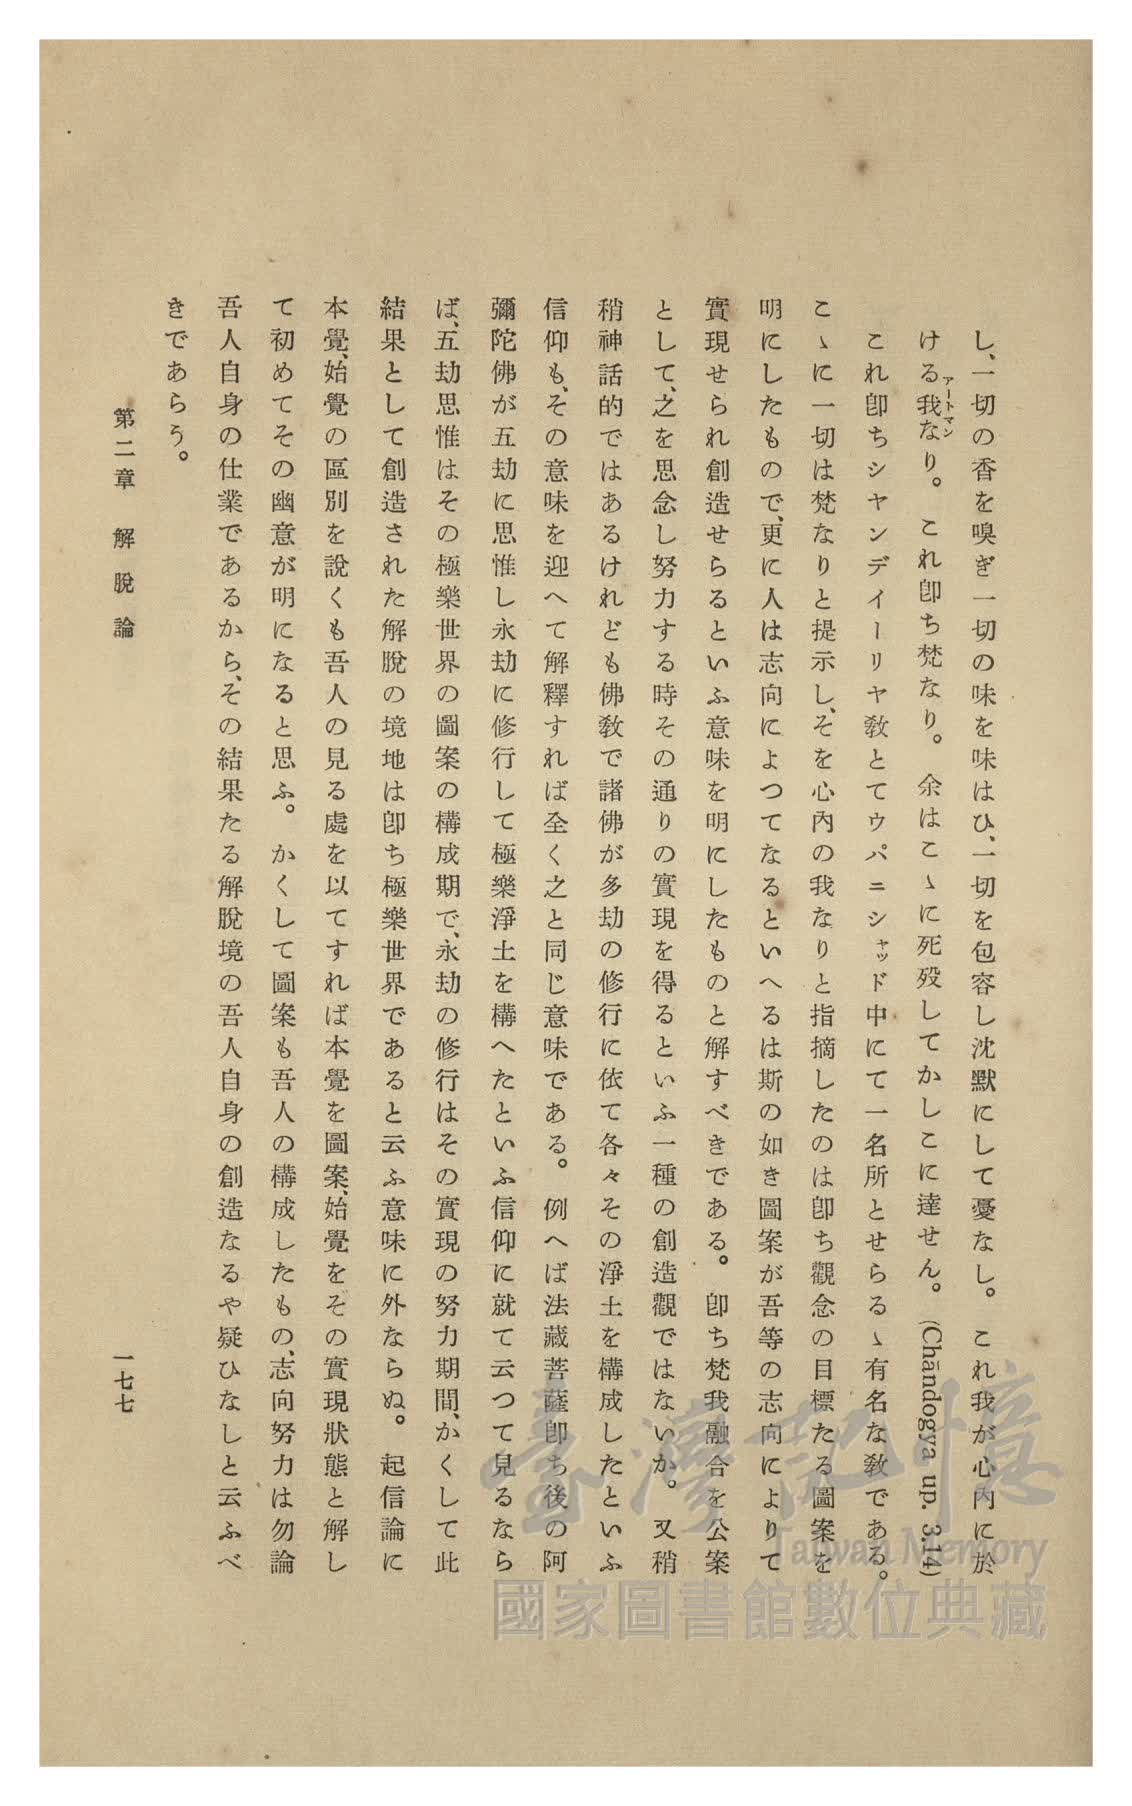 し、一切の香を嗅ぎ一切の味を味はひ、一切を包容し沈默にして憂なし。これ我が心內に於
ける我なり。これ卽ち梵なり。余はこゝに死歿してかしこに達せん。(Chāndogya up. 3.14)
アートマン
これ卽ちシヤンデイーリヤ敎とてウパニシャッド中にて一名所とせらるゝ有名な敎である。
こゝに一切は梵なりと提示し、そを心內の我なりと指摘したのは卽ち觀念の目標たる圖案を
明にしたもので、更に人は志向によつてなるといへるは斯の如き圖案が吾等の志向によりて
實現せられ創造せらるといふ意味を明にしたものと解すべきである。卽ち梵我融合を公案
として、之を思念し努力する時その通りの實現を得るといふ一種の創造觀ではないか。又稍
稍神話的ではあるけれども佛敎で諸佛が多劫の修行に依て各々その淨土を構成したといふ
信仰も、その意味を迎へて解釋すれば全く之と同じ意味である。例へば法藏菩薩卽ち後の阿
彌陀佛が五劫に思惟し永劫に修行して極樂淨土を構へたといふ信仰に就て云つて見るなら
ば、五劫思惟はその極樂世界の圖案の構成期で、永劫の修行はその實現の努力期間、かくして此
結果として創造された解脫の境地は卽ち極樂世界であると云ふ意味に外ならぬ。起信論に
本覺、始覺の區別を說くも吾人の見る處を以てすれば本覺を圖案、始覺をその實現狀態と解し
て初めてその幽意が明になると思ふ。かくして圖案も吾人の構成したもの、志向努力は勿論
吾人自身の仕業であるから、その結果たる解脫境の吾人自身の創造なるや疑ひなしと云ふべ
きであらう。
第二章　解脫論
一七七
臺灣記憶
Taiwan Memory
國家圖書館數位典藏